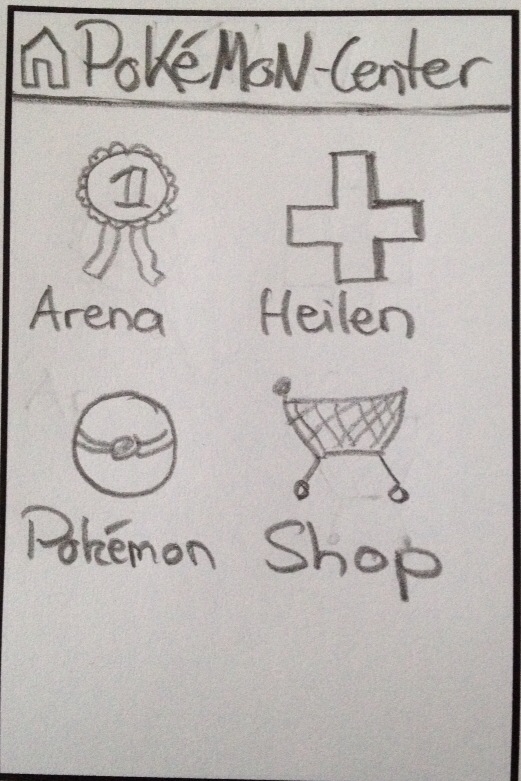 PoKéMoN-Center
1
Arena
Heilen
Pokémon
Shop